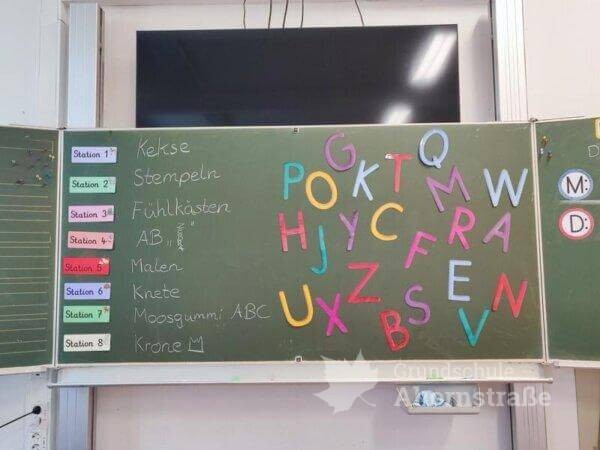 Station 1 Kekse
Station 2 Stempeln
Station 3 Fühlkästen
Station 4 AB „
Station 5 Malen
Station 6 Knete
Station 7 Moosgummi ABC
Station 8 Krone
G Q
P O K T M W
H J Y C F R A
U X Z B S E V N
M:
D:
Grundschule
Ahornstraße